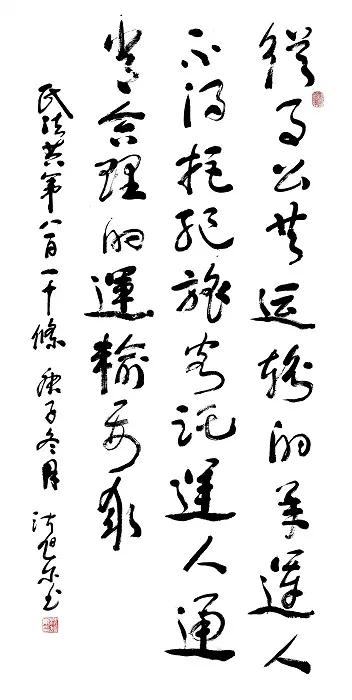 從事公共运輸的承運人
不得拒絕旅客託運人通
常合理的運輸要求
民法典第八百一十條 庚子冬月 书